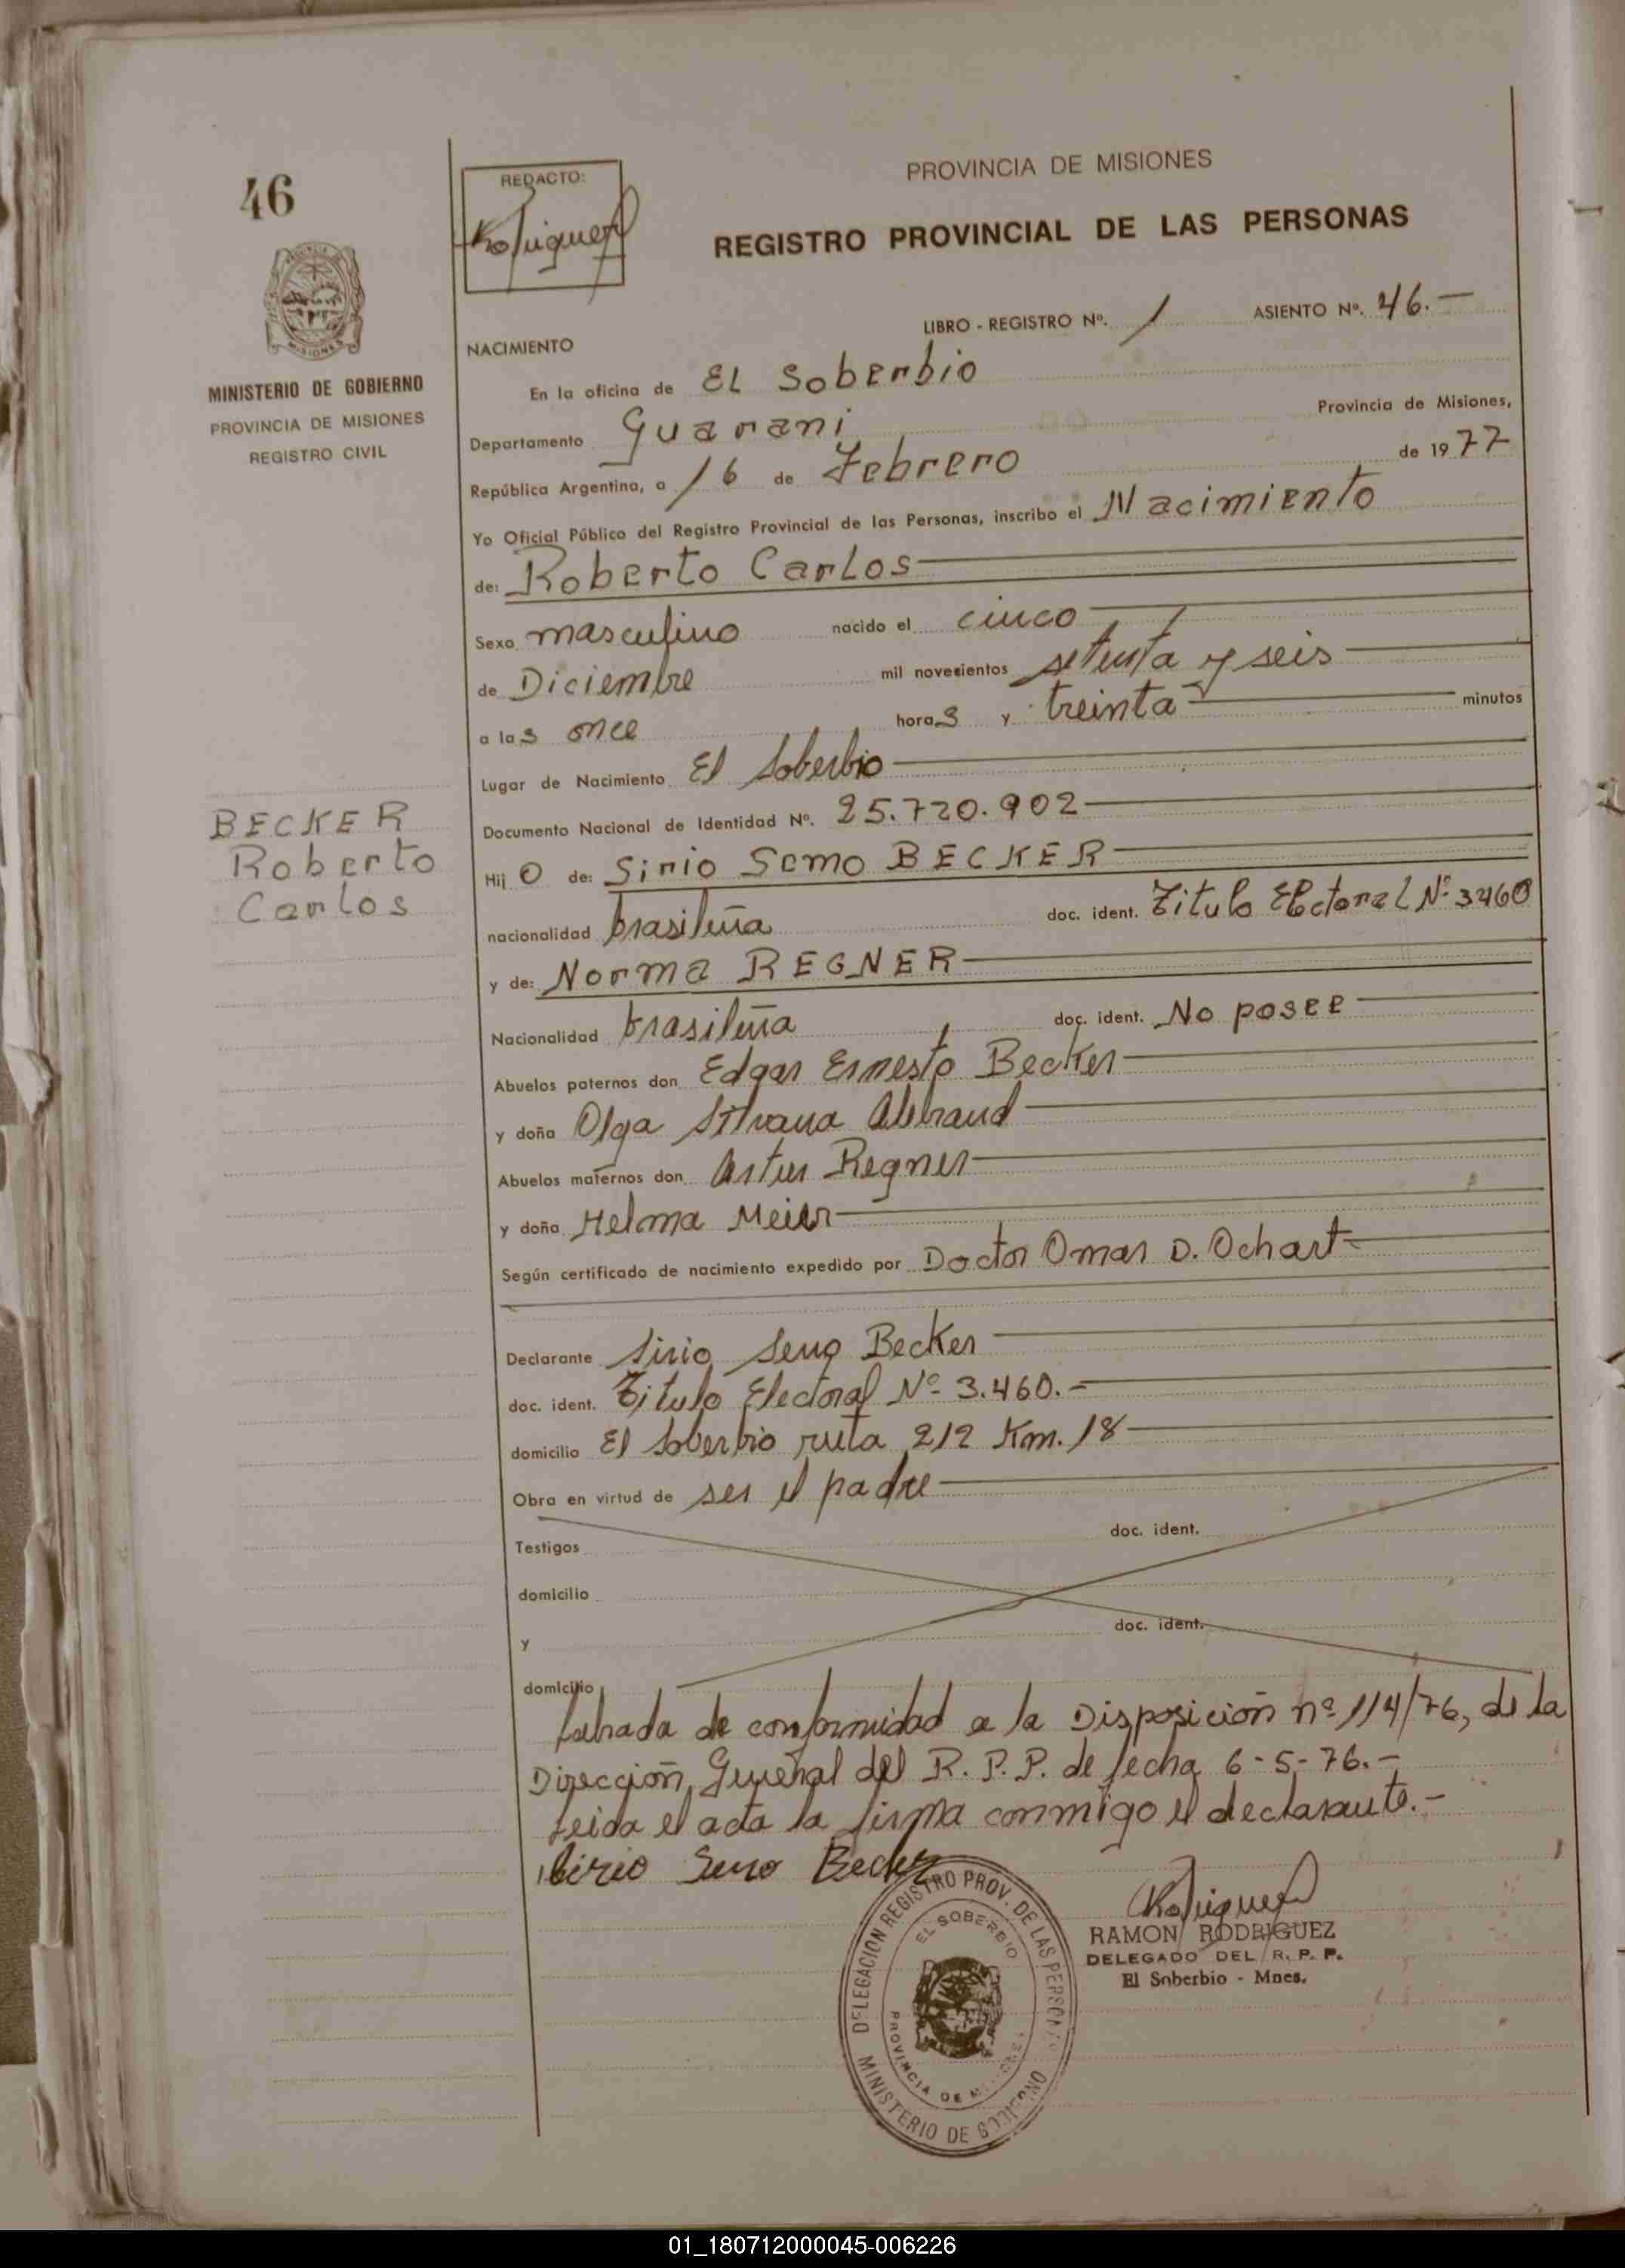 46
REDACTO:
PROVINCIA DE MISIONES
REGISTRO PROVINCIAL DE LAS PERSONAS
LIBRO - REGISTRO Nº. 1 ASIENTO Nº. 46.-
MINISTERIO DE GOBIERNO
PROVINCIA DE MISIONES
REGISTRO CIVIL
NACIMIENTO
En la oficina de EL Soberbio
Departamento Guarani Provincia de Misiones,
República Argentina, a 16 de Febrero de 1977
Yo Oficial Público del Registro Provincial de las Personas, inscribo el Nacimiento
de: Roberto Carlos
Sexo masculino nacido el cinco
de Diciembre mil novecientos setenta y seis
a las once horas y treinta minutos
Lugar de Nacimiento El Soberbio
Documento Nacional de Identidad Nº. 25.720.902
BECKER
Roberto
Carlos
Hijo de: Sirio BECKER
nacionalidad brasileña doc. ident. Titulo Electoral Nº 3460
y de: Norma REGNER
Nacionalidad brasileña doc. ident. No posee
Abuelos paternos don Edgar Ernesto Becker
y doña Olga Silvana
Abuelos maternos don Artur Regner
y doña Helma Meier
Según certificado de nacimiento expedido por Doctor Omar D. Ochart
Declarante Sirio Seno Becker
doc. ident. Titulo Electoral Nº 3.460.-
domicilio El Soberbio ruta 212 Km. 18
Obra en virtud de ser el padre
Testigos doc. ident.
domicilio
y doc. ident.
domicilio
Labrada de conformidad a la Disposición nº 114/76, de la
Dirección General del R. P. P. de fecha 6-5-76.-
Leida el acta la firma conmigo el declarante.-
Sirio Seno Becker
DELEGACION REGISTRO PROV. DE LAS PERSONAS
EL SOBERBIO
PROVINCIA DE MISIONES
MINISTERIO DE GOBIERNO
RAMON RODRIGUEZ
DELEGADO DEL R. P. P.
El Soberbio - Mnes.
01_180712000045-006226